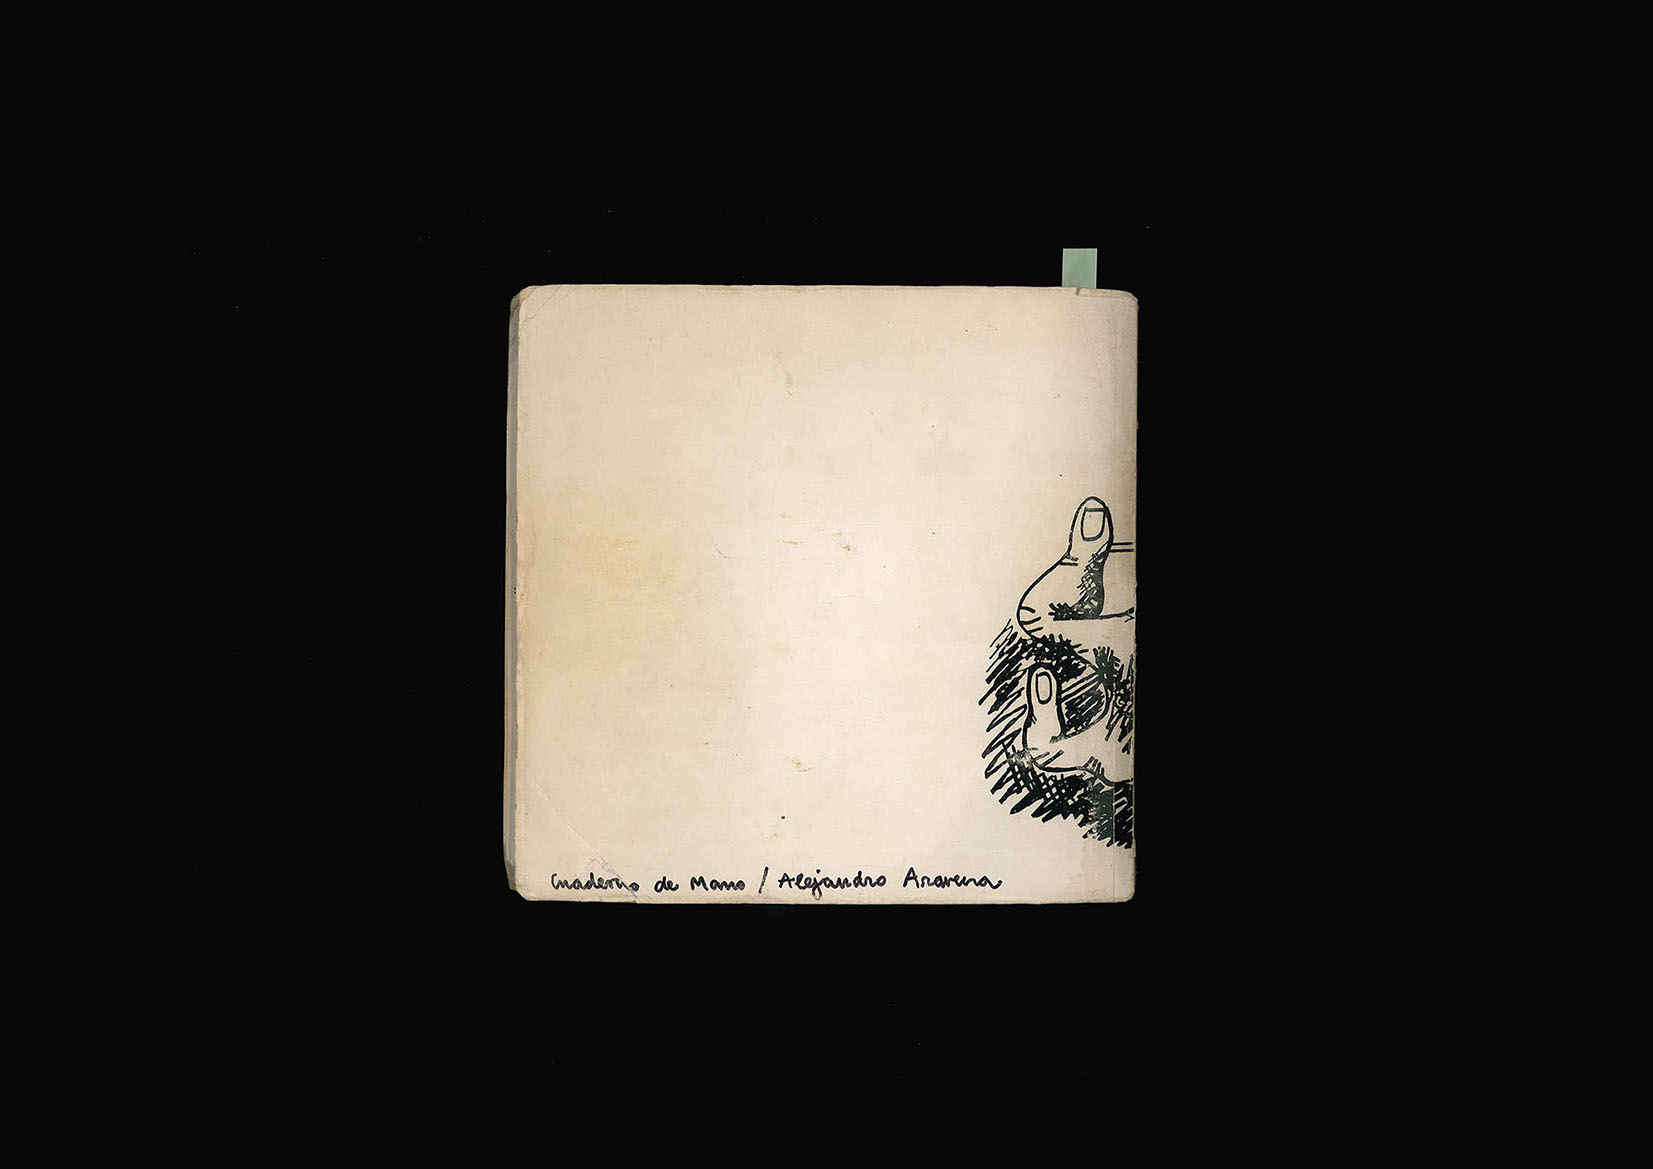 Cuaderno de Mano / Alejandro Aravena